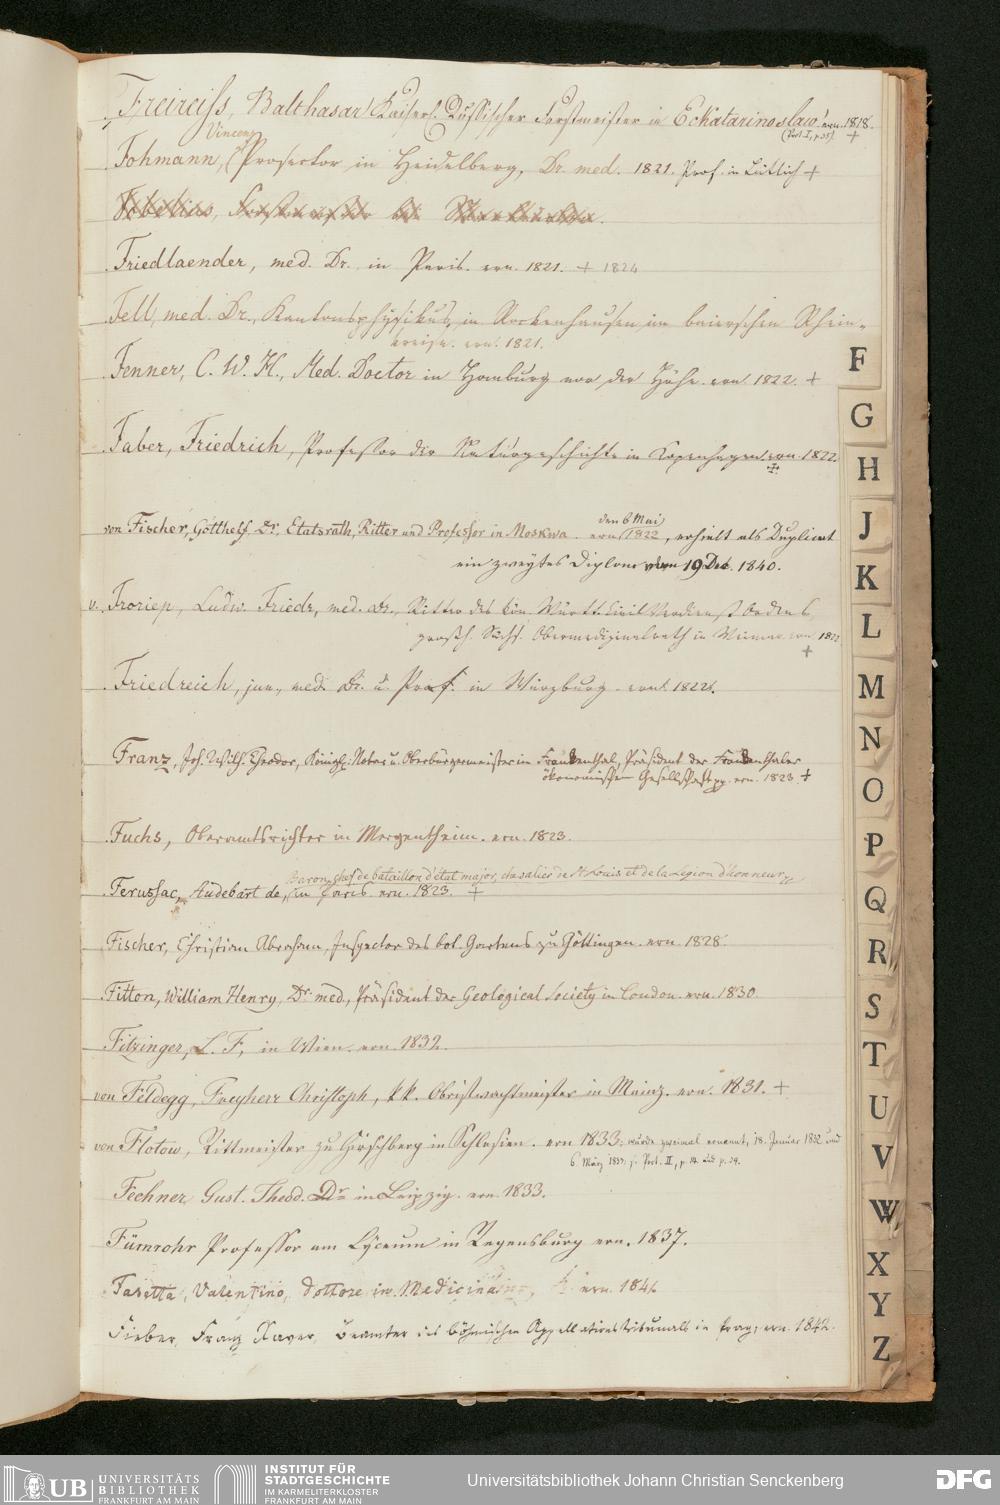 Freireiss, Balthasar, Kaiserl. Russischer Forstmeister in Eckatarinoslaw. ern. 1818. +
(Prot. I, p. 35)
Vincenz
Fohmann, Prosector in Heidelberg, Dr. med. 1821. Prof. in Lüttich +
Friedlaender, med. Dr. in Paris. ern. 1821. + 1824
Fell, med. Dr., Kantonsphysikus, in Rockenhausen im baierschen Rhein-
kreise. ern. 1821.
Fenner, C. W. H., Med. Doctor in Homburg vor der Höhe. ern. 1822. +
Faber, Friedrich, Professor der Naturgeschichte in Copenhagen. ern. 1822.
+
den 6 Mai
von Fischer, Gotthelf, Dr. Etatsrath, Ritter und Professor in Moskwa. ern. 1822, erhielt als Duplicat
ein zweytes Diplom vom 19 Dec. 1840.
v. Froriep, Ludw. Friedr., med. Dr., Ritter des kön. Württ. Civil Verdienst Ordens,
grosh. Sächs. Obermedizinalrath in Weimar. ern. 1822
+
Friedreich, jun., med. Dr. u. Prof. in Würzburg. ernt. 1822.
Franz, Joh. Wilh. Theodor, Königl. Notar u. Oberbürgermeister in Frankenthal, Präsident der Frankenthaler
ökonomischen Gesellschaft pp. ern. 1823 +
Fuchs, Oberamtsrichter in Mergentheim. ern. 1823.
Baron, chef de bataillon d'état major, chevalier de St Louis et de la Legion d'honneur
Ferussac, Audebart de, in Paris. ern. 1823. +
Fischer, Christian Abraham, Inspector des bot. Gartens zu Göttingen. ern. 1828.
Fitton, William Henry, Dr. med., Präsident der Geological Society in London. ern. 1830.
Fitzinger, L. F., in Wien. ern. 1832.
von Feldegg, Freyherr Christoph, k.k. Obristwachtmeister in Mainz. ern. 1831. +
von Flotow, Rittmeister zu Hirschberg in Schlesien. ern. 1833; wurde zweimal ernannt, 18. Januar 1832 und
6. März 1833; s. Prot. II, p. 14. und p. 29.
Fechner, Gust. Theod. Dr. in Leipzig. ern. 1833.
Fürnrohr Professor am Lyceum in Regensburg ern. 1837.
Fasetta, Valentino, Dottore in Medicina, ern. 184
Fieber, Franz Xaver, Beamter des böhmischen Appellationstribunals in Prag, ern. 1842.
F
G
H
J
K
L
M
N
O
P
Q
R
S
T
U
V
W
X
Y
Z
UB UNIVERSITÄTS
BIBLIOTHEK
FRANKFURT AM MAIN
INSTITUT FÜR
STADTGESCHICHTE
IM KARMELITERKLOSTER
FRANKFURT AM MAIN
Universitätsbibliothek Johann Christian Senckenberg
DFG